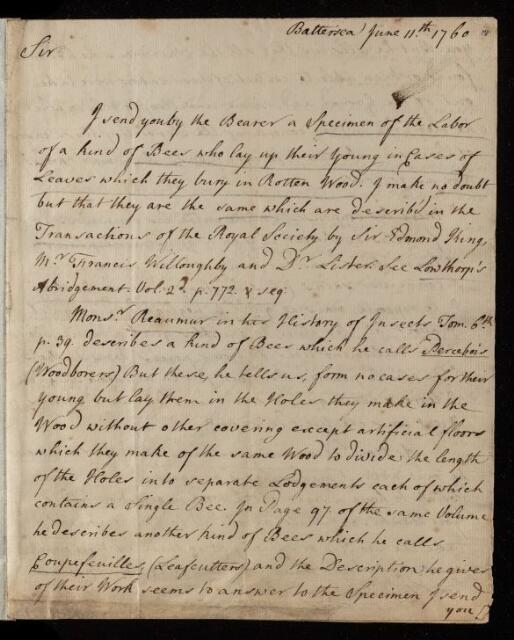 Battersea June 11.th 1760
Sir
I send you by the Bearer a Specimen of the Labor
of a kind of Bees who lay up their Young in Cases of
Leaves which they bury in Rotten Wood. I make no doubt
but that they are the same which are describ'd in the
Transactions of the Royal Society by Sir Edmond King,
Mr. Francis Willoughby and Dr. Lister. See Lowthorp's
Abridgement. Vol. 2d. p. 772. & seq.
Monsr. Reaumur in his History of Insects Tom. 6th.
p. 39. describes a kind of Bees which he calls Percebois
(Woodborers) But these, he tells us, form no cases for their
young but lay them in the Holes they make in the
Wood without other covering except artificial floors
which they make of the same Wood to divide the length
of the Holes into separate Lodgements each of which
contains a Single Bee. In Page 97 of the same Volume
he describes another kind of Bees which he calls
Coupefeuilles, (Leafcutters) and the Description he gives
of their Work seems to answer to the Specimen I send
you